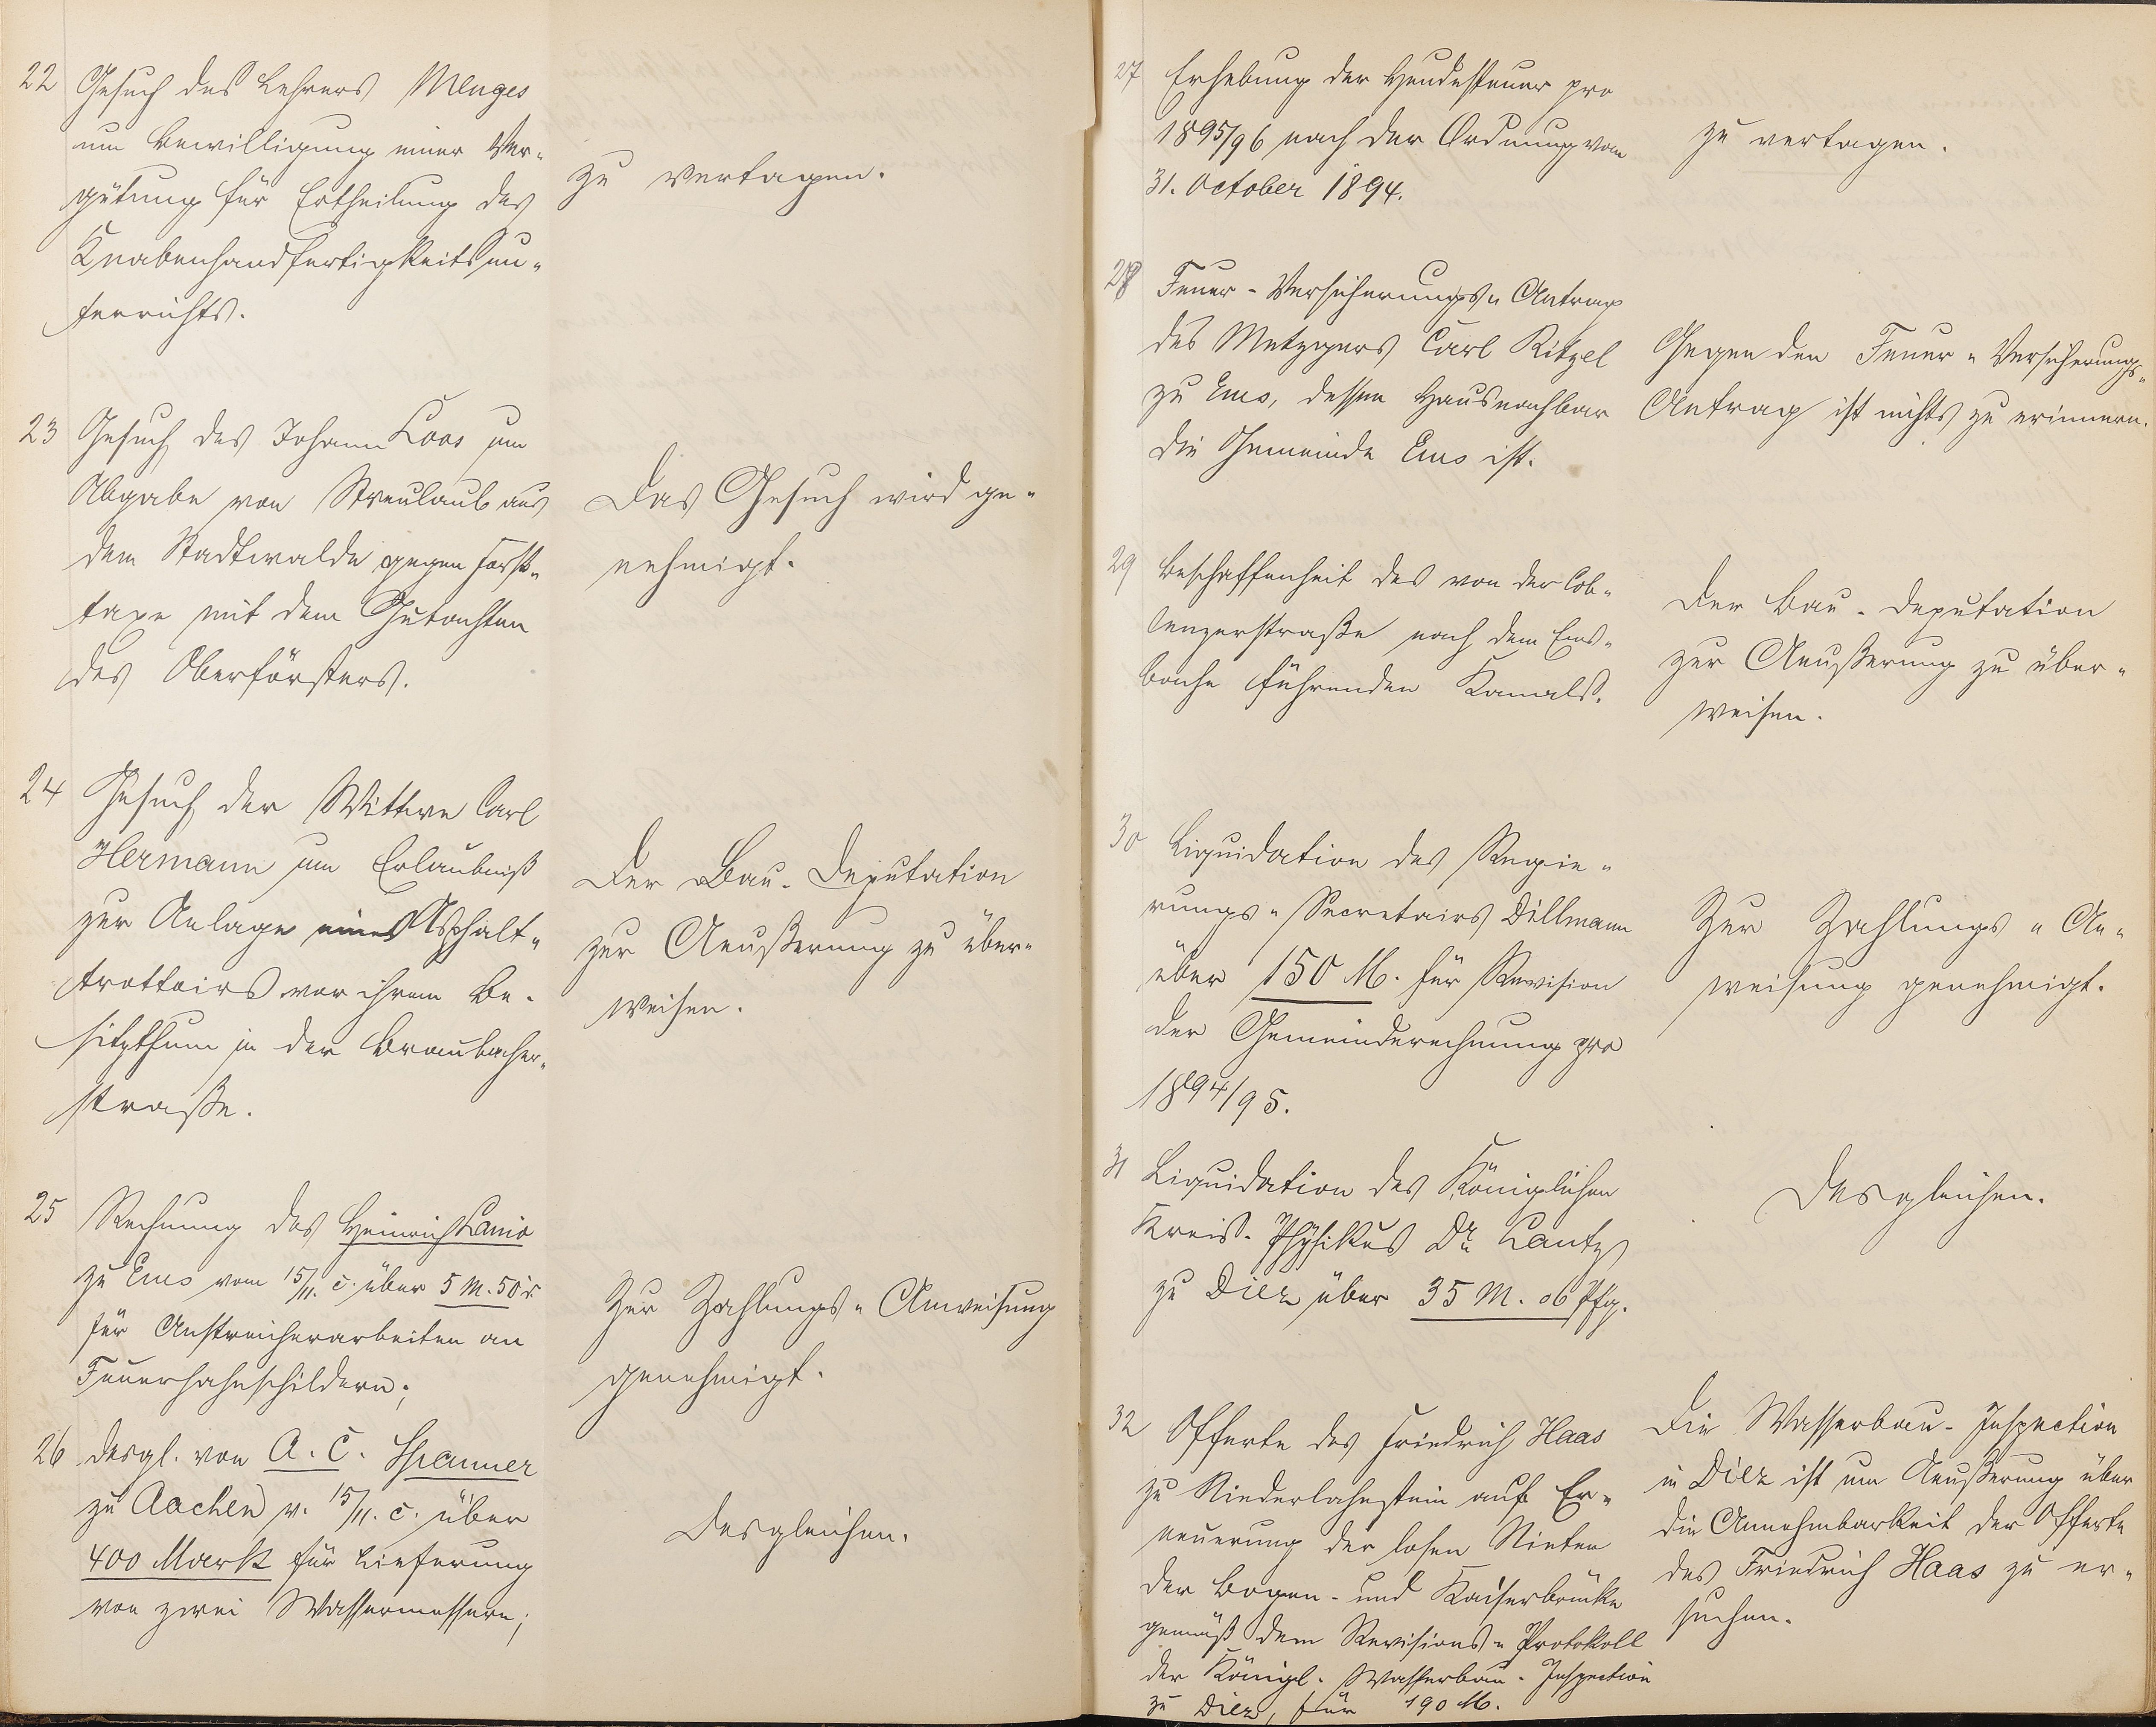 22 Gesuch des Lehrers Menges
um Bewilligung einer Ver-
gütung für Ertheilung des
Knabenhandfertigkeitsun-
terrichts.
zu vertagen.
23 Gesuch des Johann Loos um
Abgabe von Streulaub aus
dem Stadtwalde gegen Forst-
taxe mit dem Gutachten
des Oberförsters.
Das Gesuch wird ge-
nehmigt.
24 Gesuch der Wittwe Carl
Hermann um Erlaubniß
zur Anlage eines Asphalt-
trottoirs vor ihrem Be-
sitzthum in der Braubacher-
straße.
Der Bau-Deputation
zur Aeußerung zu über-
weisen.
25 Rechnung des Heinrich Lanio
zu Ems vom 15/11. c. über 5 M. 50
für Anstreicherarbeiten an
Feuerhahnschildern;
Zur Zahlungs-Anweisung
genehmigt.
26 desgl. von A. C. Spanner
zu Aachen v. 15/11. c. über
400 Mark für Lieferung
von zwei Wassermessern;
Desgleichen.
27 Erhebung der Hundesteuer pro
1895/96 nach der Ordnung vom
31. October 1894.
zu vertagen.
28 Feuer-Versicherungs-Antrag
des Metzgers Carl Ritzel
zu Ems, dessen Hausnachbar
die Gemeinde Ems ist.
Gegen den Feuer-Versicherungs-
Antrag ist nichts zu erinnern.
29 Beschaffenheit des von der Cob-
lenzerstraße nach dem Ems-
bache führenden Kanals.
Der Bau-Deputation
zur Aeußerung zu über-
weisen.
30 Liquidation des Regie-
rungs-Secretairs Dillmann
über 150 M. für Revision
der Gemeinderechnung pro
1894/95.
Zur Zahlungs-An-
weisung genehmigt.
31 Liquidation des Königlichen
Kreis-Physikus Dr. Lautz
zu Diez über 35 M. 06 Pfg.
Desgleichen.
32 Offerte des Friedrich Haas
zu Niederlahnstein auf Er-
neuerung der losen Nieten
der Bogen- und Kaiserbrücke
gemäß dem Revisions-Protokoll
der Königl. Wasserbau-Inspection
zu Diez, für 190 M.
Die Wasserbau-Inspection
in Diez ist um Aeußerung über
die Annehmbarkeit der Offerte
des Friedrich Haas zu er-
suchen.